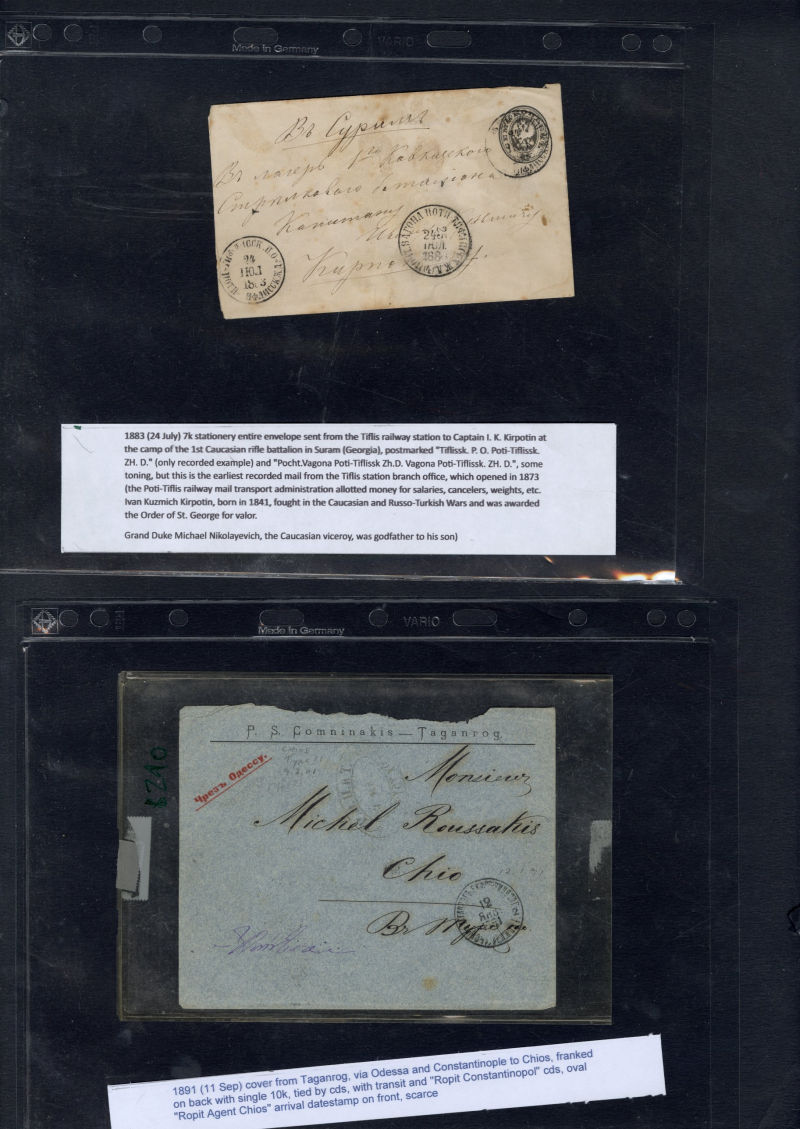 Made in Germany
VARIO
Въ Сурамъ
Въ лагерь 1го Кавказского
Стрѣлковаго баталіона
Капитану
24
ІЮЛ
188
24
ІЮЛ
1883
1883 (24 July) 7k stationery entire envelope sent from the Tiflis railway station to Captain I. K. Kirpotin at
the camp of the 1st Caucasian rifle battalion in Suram (Georgia), postmarked "Tiflissk. P. O. Poti-Tiflissk.
ZH. D." (only recorded example) and "Pocht.Vagona Poti-Tiflissk Zh.D. Vagona Poti-Tiflissk. ZH. D.", some
toning, but this is the earliest recorded mail from the Tiflis station branch office, which opened in 1873
(the Poti-Tiflis railway mail transport administration allotted money for salaries, cancelers, weights, etc.
Ivan Kuzmich Kirpotin, born in 1841, fought in the Caucasian and Russo-Turkish Wars and was awarded
the Order of St. George for valor.
Grand Duke Michael Nikolayevich, the Caucasian viceroy, was godfather to his son)
Made in Germany
VARIO
P. S. Comninakis — Taganrog.
Чрезъ Одессу.
Monsieur
Michel Roussakis
Chio
12
Въ
1891 (11 Sep) cover from Taganrog, via Odessa and Constantinople to Chios, franked
on back with single 10k, tied by cds, with transit and "Ropit Constantinopol" cds, oval
"Ropit Agent Chios" arrival datestamp on front, scarce